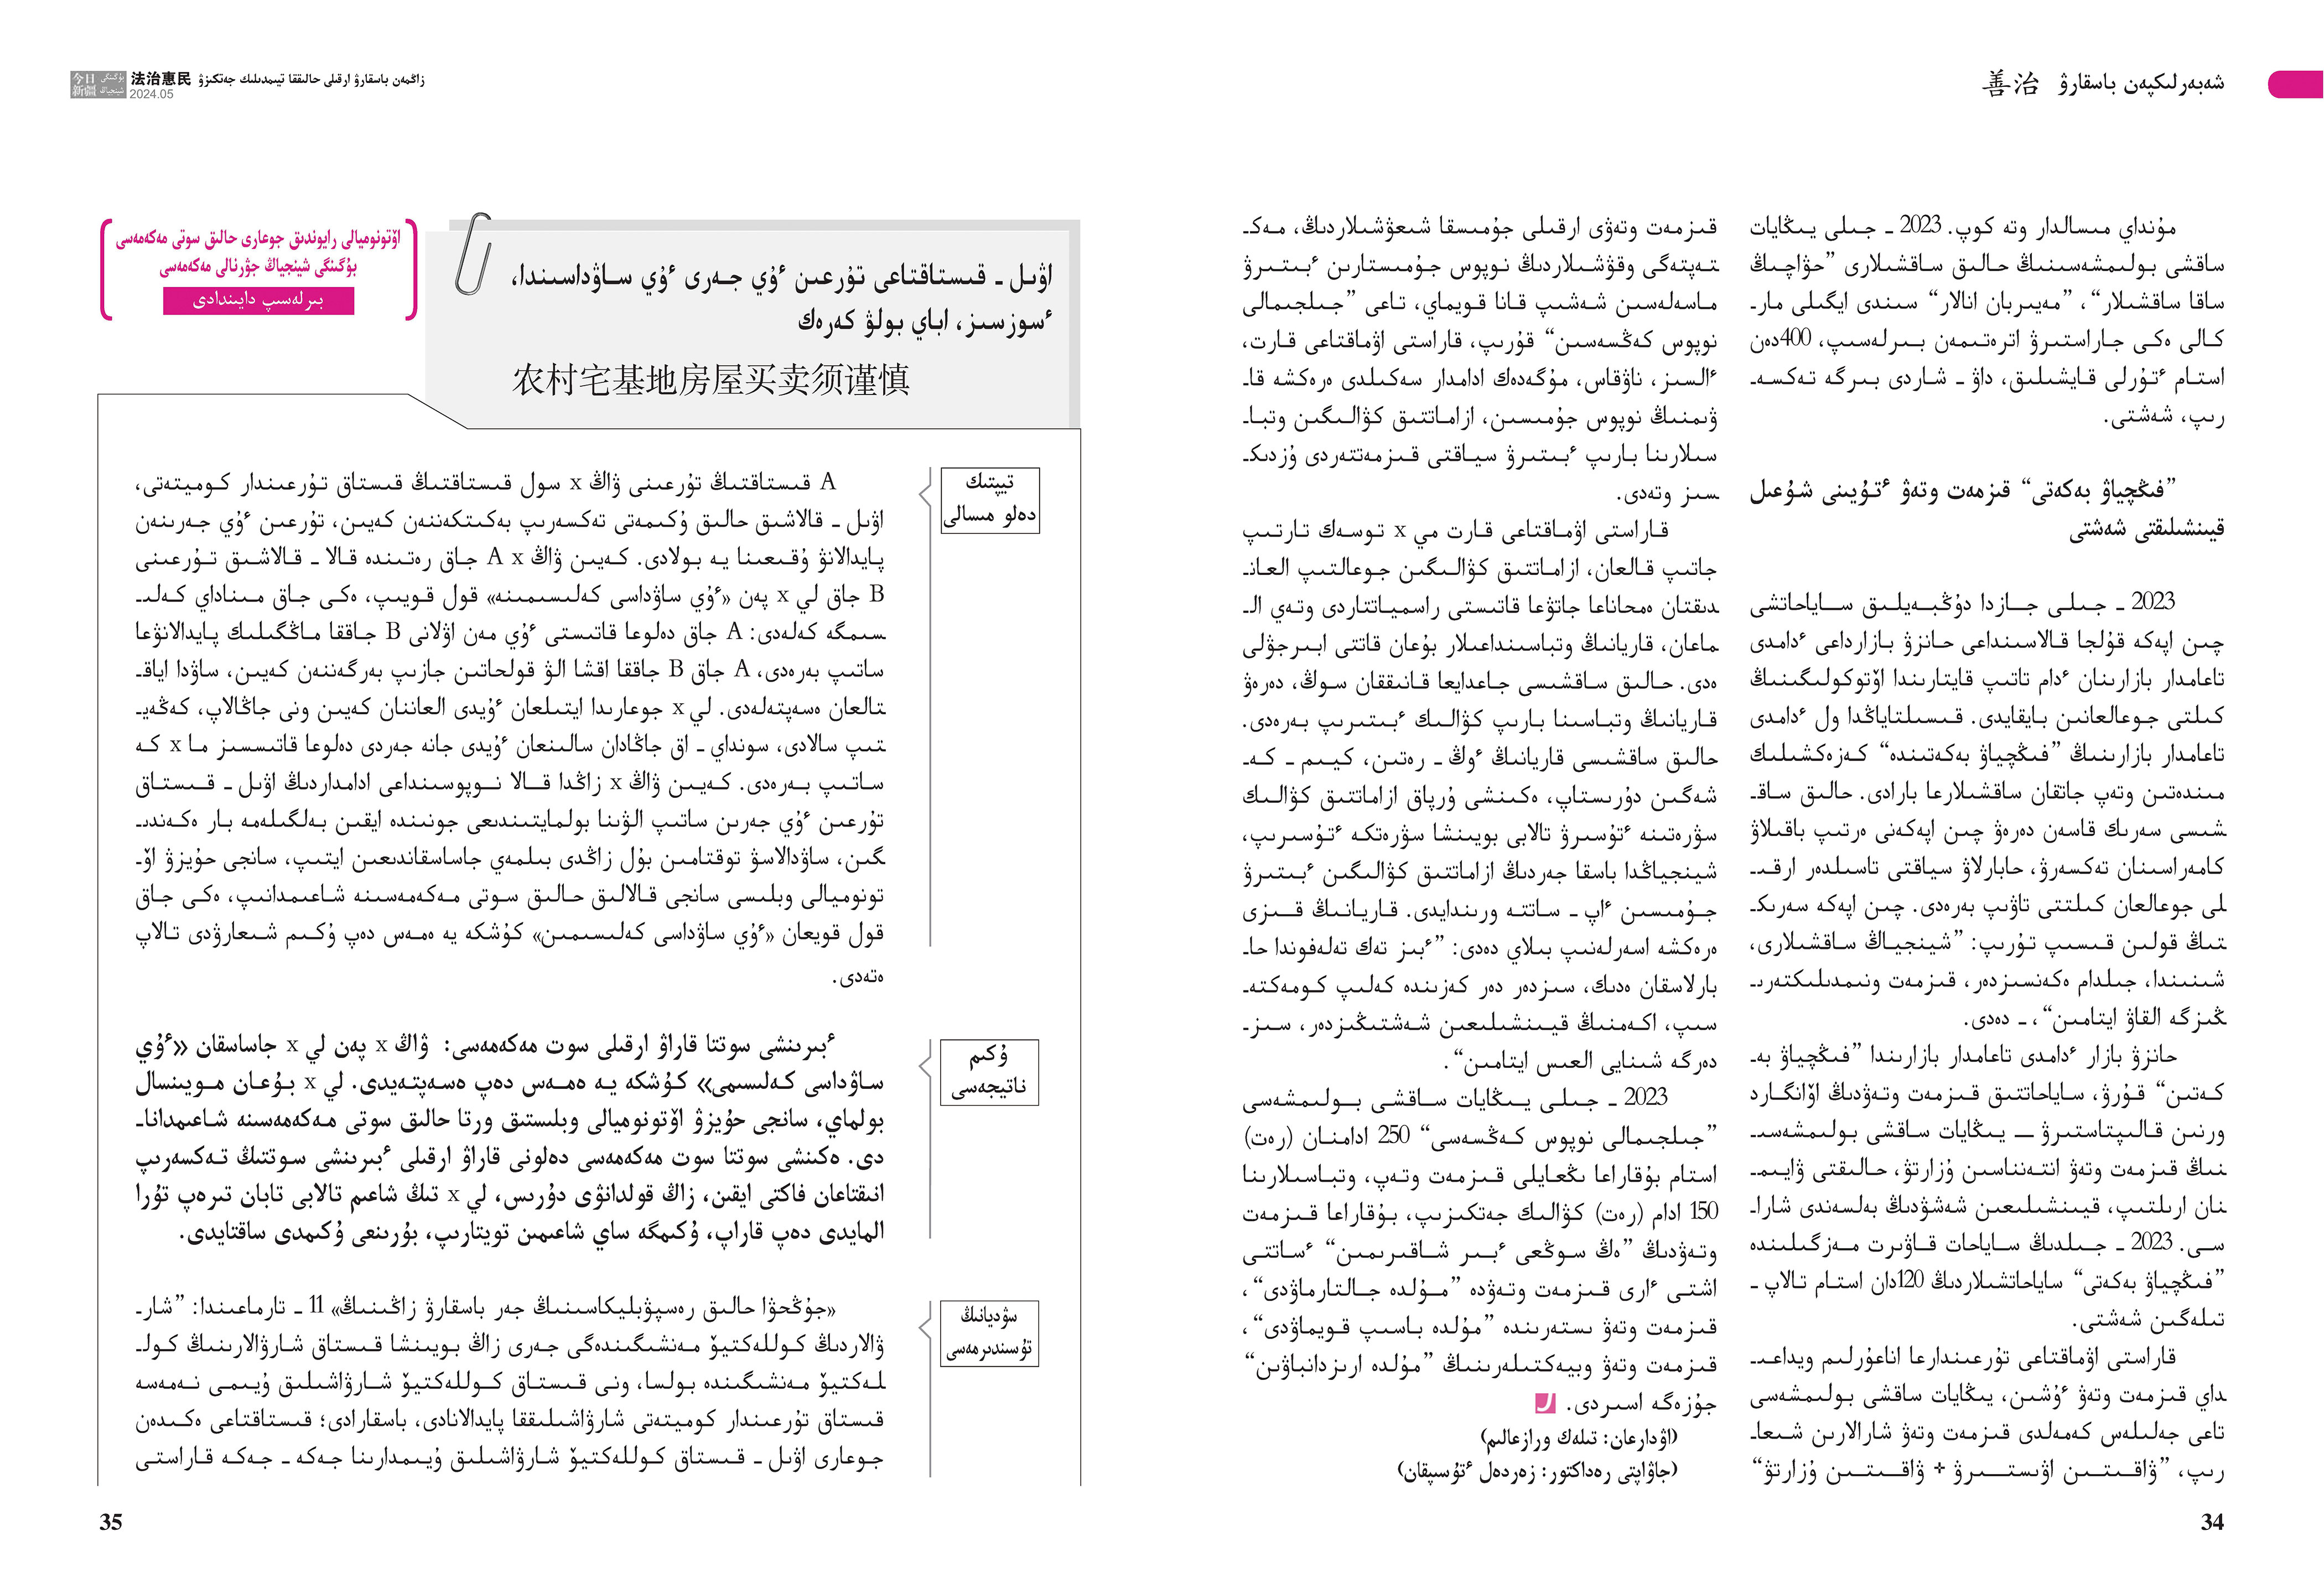 شەبەرلىكپەن باسقارۋ 善治
مۇنداي مىسالدار وتە كوپ. 2023 ـ جىلى يىڭايات
ساقشى بولىمشەسىنىڭ حالىق ساقشىلارى ”حۋاچىڭ
ساقا ساقشىلار“، ”مەيىربان انالار“ سىندى ايگىلى مار-
كالى ەكى جاراستىرۋ اترەتىمەن بىرلەسىپ، 400دەن
استام ءتۇرلى قايشىلىق، داۋ ـ شاردى بىرگە تەكسە-
رىپ، شەشتى.
”فىڭچياۋ بەكەتى“ قىزمەت وتەۋ ءتۇيىنى شۇعىل
قيىنشىلىقتى شەشتى
2023 ـ جىلى جازدا دۇڭبەيلىق ساياحاتشى
چىن اپەكە قۇلجا قالاسىنداعى حانزۋ بازارداعى ءدامدى
تاعامدار بازارىنان ءدام تاتىپ قايتارىندا اۆتوكولىگىنىڭ
كىلتى جوعالعانىن بايقايدى. قىسىلتاياڭدا ول ءدامدى
تاعامدار بازارىنىڭ ”فىڭچياۋ بەكەتىندە“ كەزەكشىلىك
مىندەتىن وتەپ جاتقان ساقشىلارعا بارادى. حالىق ساق-
شىسى سەرىك قاسەن دەرەۋ چىن اپەكەنى ەرتىپ باقىلاۋ
كامەراسىنان تەكسەرۋ، حابارلاۋ سياقتى تاسىلدەر ارقى-
لى جوعالعان كىلتتى تاۋىپ بەرەدى. چىن اپەكە سەرىك-
تىڭ قولىن قىسىپ تۇرىپ: ”شينجياڭ ساقشىلارى،
شىنىندا، جىلدام ەكەنسىزدەر، قىزمەت ونىمدىلىكتەرى-
ڭىزگە القاۋ ايتامىن“، ـ دەدى.
حانزۋ بازار ءدامدى تاعامدار بازارىندا ”فىڭچياۋ بە-
كەتىن“ قۇرۋ، ساياحاتتىق قىزمەت وتەۋدىڭ اۆانگارد
ورنىن قالىپتاستىرۋ — يىڭايات ساقشى بولىمشەسى-
نىڭ قىزمەت وتەۋ انتەنناسىن ۇزارتۋ، حالىقتى ۋايىم-
نان ارىلتىپ، قيىنشىلىعىن شەشۋدىڭ بەلسەندى شارا-
سى. 2023 ـ جىلدىڭ ساياحات قاۋىرت مەزگىلىندە
”فىڭچياۋ بەكەتى“ ساياحاتشىلاردىڭ 120دان استام تالاپ ـ
تىلەگىن شەشتى.
قاراستى اۋماقتاعى تۇرعىندارعا اناعۇرلىم ويداعى-
داي قىزمەت وتەۋ ءۇشىن، يىڭايات ساقشى بولىمشەسى
تاعى جەلىلەس كەمەلدى قىزمەت وتەۋ شارالارىن شىعا-
رىپ، ”ۋاقىتىن اۋىستىرۋ + ۋاقىتىن ۇزارتۋ“
قىزمەت وتەۋى ارقىلى جۇمىسقا شىعۋشىلاردىڭ، مەك-
تەپتەگى وقۋشىلاردىڭ نوپوس جۇمىستارىن ءبىتىرۋ
ماسەلەسىن شەشىپ قانا قويماي، تاعى ”جىلجىمالى
نوپوس كەڭسەسىن“ قۇرىپ، قاراستى اۋماقتاعى قارت،
ءالسىز، ناۋقاس، مۇگەدەك ادامدار سەكىلدى ەرەكشە قا-
ۋىمنىڭ نوپوس جۇمىسىن، ازاماتتىق كۋالىگىن وتبا-
سىلارىنا بارىپ ءبىتىرۋ سياقتى قىزمەتتەردى ۇزدىك-
سىز وتەدى.
قاراستى اۋماقتاعى قارت مي x توسەك تارتىپ
جاتىپ قالعان، ازاماتتىق كۋالىگىن جوعالتىپ العان-
دىقتان ەمحاناعا جاتۋعا قاتىستى راسمياتتاردى وتەي ال-
ماعان، قاريانىڭ وتباسىنداعىلار بۇعان قاتتى ابىرجۋلى
ەدى. حالىق ساقشىسى جاعدايعا قانىققان سوڭ، دەرەۋ
قاريانىڭ وتباسىنا بارىپ كۋالىك ءبىتىرىپ بەرەدى.
حالىق ساقشىسى قاريانىڭ ءوڭ ـ رەتىن، كيىم ـ كە-
شەگىن دۇرىستاپ، ەكىنشى ۇرپاق ازاماتتىق كۋالىك
سۋرەتىنە ءتۇسىرۋ تالابى بويىنشا سۋرەتكە ءتۇسىرىپ،
شينجياڭدا باسقا جەردىڭ ازاماتتىق كۋالىگىن ءبىتىرۋ
جۇمىسىن ءاپ ـ ساتتە ورىندايدى. قاريانىڭ قىزى
ەرەكشە اسەرلەنىپ بىلاي دەدى: ”ءبىز تەك تەلەفوندا حا-
بارلاسقان ەدىك، سىزدەر دەر كەزىندە كەلىپ كومەكتە-
سىپ، اكەمنىڭ قيىنشىلىعىن شەشتىڭىزدەر، سىز-
دەرگە شىنايى العىس ايتامىن“.
2023 ـ جىلى يىڭايات ساقشى بولىمشەسى
”جىلجىمالى نوپوس كەڭسەسى“ 250 ادامنان (رەت)
استام بۇقاراعا ىڭعايلى قىزمەت وتەپ، وتباسىلارىنا
150 ادام (رەت) كۋالىك جەتكىزىپ، بۇقاراعا قىزمەت
وتەۋدىڭ ”ەڭ سوڭعى ءبىر شاقىرىمىن“ ءساتتى
اشتى ءارى قىزمەت وتەۋدە ”مۇلدە جالتارماۋدى“،
قىزمەت وتەۋ ىستەرىندە ”مۇلدە باسىپ قويماۋدى“،
قىزمەت وتەۋ وبيەكتىلەرىنىڭ ”مۇلدە ارىزدانباۋىن“
جۇزەگە اسىردى.
(اۋدارعان: تىلەك ورازعالىم)
(جاۋاپتى رەداكتور: زەردەل ءتۇسىپقان)
34
今日新疆 بۇگىنگى شينجياڭ 法治惠民 زاڭمەن باسقارۋ ارقىلى حالىققا تيىمدىلىك جەتكىزۋ
2024.05
اۆتونوميالى رايوندىق جوعارى حالىق سوتى مەكەمەسى
بۇگىنگى شينجياڭ جۋرنالى مەكەمەسى
بىرلەسىپ دايىندادى
اۋىل ـ قىستاقتاعى تۇرعىن ءۇي جەرى ءۇي ساۋداسىندا،
ءسوزسىز، اباي بولۋ كەرەك
农村宅基地房屋买卖须谨慎
تيپتىك
دەلو مىسالى
A قىستاقتىڭ تۇرعىنى ۋاڭ x سول قىستاقتىڭ قىستاق تۇرعىندار كوميتەتى،
اۋىل ـ قالاشىق حالىق ۇكىمەتى تەكسەرىپ بەكىتكەننەن كەيىن، تۇرعىن ءۇي جەرىنەن
پايدالانۋ ۇقىعىنا يە بولادى. كەيىن ۋاڭ x A جاق رەتىندە قالا ـ قالاشىق تۇرعىنى
B جاق لي x پەن «ءۇي ساۋداسى كەلىسىمىنە» قول قويىپ، ەكى جاق مىناداي كەلى-
سىمگە كەلەدى: A جاق دەلوعا قاتىستى ءۇي مەن اۋلانى B جاققا ماڭگىلىك پايدالانۋعا
ساتىپ بەرەدى، A جاق B جاققا اقشا الۋ قولحاتىن جازىپ بەرگەننەن كەيىن، ساۋدا اياق-
تالعان ەسەپتەلەدى. لي x جوعارىدا ايتىلعان ءۇيدى العاننان كەيىن ونى جاڭالاپ، كەڭەي-
تىپ سالادى، سونداي ـ اق جاڭادان سالىنعان ءۇيدى جانە جەردى دەلوعا قاتىسسىز ما x كە
ساتىپ بەرەدى. كەيىن ۋاڭ x زاڭدا قالا نوپوسىنداعى ادامداردىڭ اۋىل ـ قىستاق
تۇرعىن ءۇي جەرىن ساتىپ الۋىنا بولمايتىندىعى جونىندە ايقىن بەلگىلەمە بار ەكەندى-
گىن، ساۋدالاسۋ توقتامىن بۇل زاڭدى بىلمەي جاساسقاندىعىن ايتىپ، سانجى حۇيزۋ اۆ-
تونوميالى وبلىسى سانجى قالالىق حالىق سوتى مەكەمەسىنە شاعىمدانىپ، ەكى جاق
قول قويعان «ءۇي ساۋداسى كەلىسىمىن» كۇشكە يە ەمەس دەپ ۇكىم شىعارۋدى تالاپ
ەتەدى.
ۇكىم
ناتيجەسى
ءبىرىنشى سوتتا قاراۋ ارقىلى سوت مەكەمەسى: ۋاڭ x پەن لي x جاساسقان «ءۇي
ساۋداسى كەلىسىمى» كۇشكە يە ەمەس دەپ ەسەپتەيدى. لي x بۇعان مويىنسال
بولماي، سانجى حۇيزۋ اۆتونوميالى وبلىستىق ورتا حالىق سوتى مەكەمەسىنە شاعىمدانا-
دى. ەكىنشى سوتتا سوت مەكەمەسى دەلونى قاراۋ ارقىلى ءبىرىنشى سوتتىڭ تەكسەرىپ
انىقتاعان فاكتى ايقىن، زاڭ قولدانۋى دۇرىس، لي x تىڭ شاعىم تالابى تابان تىرەپ تۇرا
المايدى دەپ قاراپ، ۇكىمگە ساي شاعىمىن تويتارىپ، بۇرىنعى ۇكىمدى ساقتايدى.
سۋديانىڭ
تۇسىندىرمەسى
«جۇڭحۋا حالىق رەسپۋبليكاسىنىڭ جەر باسقارۋ زاڭىنىڭ» 11 ـ تارماعىندا: ”شار-
ۋالاردىڭ كوللەكتيۆ مەنشىگىندەگى جەرى زاڭ بويىنشا قىستاق شارۋالارىنىڭ كول-
لەكتيۆ مەنشىگىندە بولسا، ونى قىستاق كوللەكتيۆ شارۋاشىلىق ۇيىمى نەمەسە
قىستاق تۇرعىندار كوميتەتى شارۋاشىلىققا پايدالانادى، باسقارادى؛ قىستاقتاعى ەكىدەن
جوعارى اۋىل ـ قىستاق كوللەكتيۆ شارۋاشىلىق ۇيىمدارىنا جەكە ـ جەكە قاراستى
35